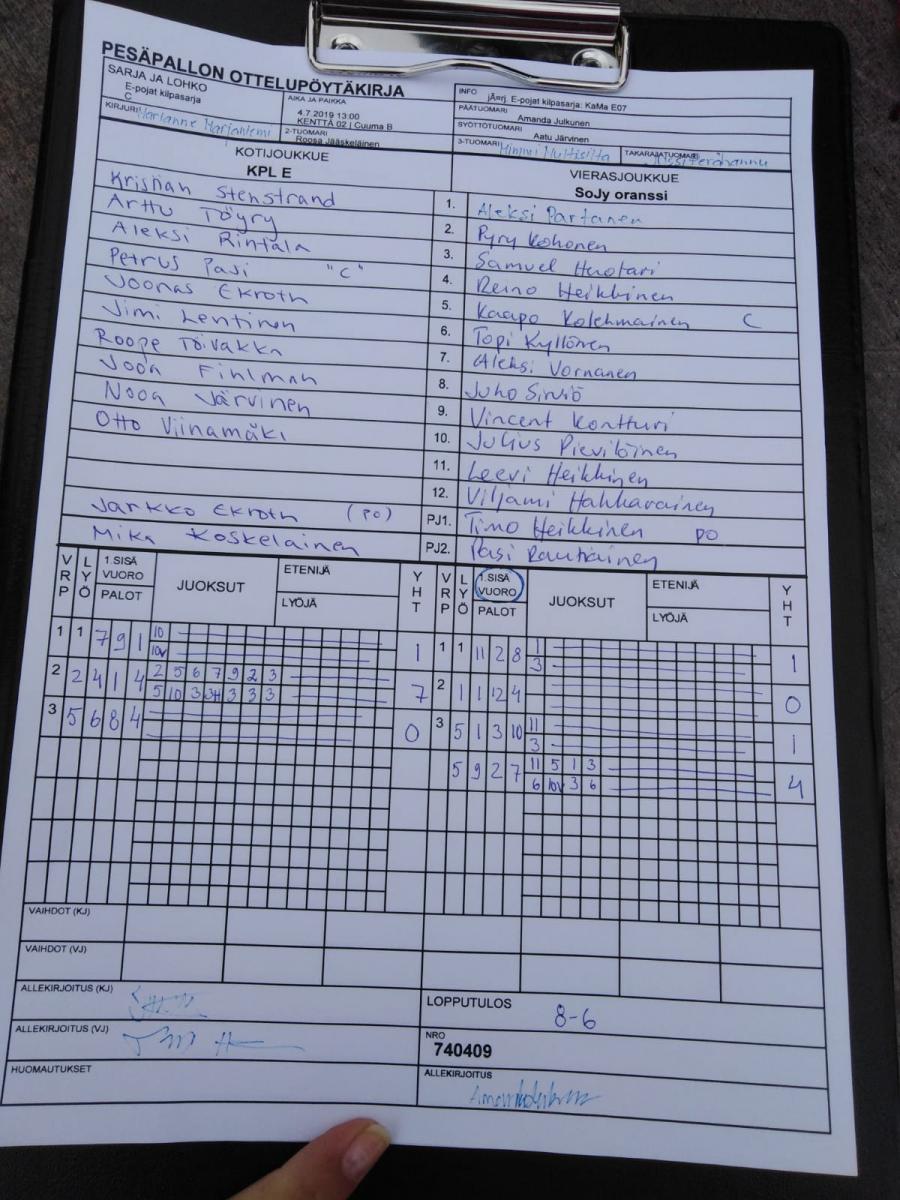 PESÄPALLON OTTELUPÖYTÄKIRJA
SARJA JA LOHKO
E-pojat kilpasarja
C
AIKA JA PAIKKA
4.7.2019 13:00
KENTTÄ 02 | Cuuma B
INFO
jÃ¤rj. E-pojat kilpasarja: KaMa E07
PÄÄTUOMARI Amanda Julkunen
SYÖTTÖTUOMARI Aatu Järvinen
KIRJURI Marianne Marjaniemi
2-TUOMARI Roosa Jääskeläinen
3-TUOMARI Mimmi Multisilta
TAKARAJATUOMARI
KOTIJOUKKUE
KPL E
VIERASJOUKKUE
SoJy oranssi
Kristian Stenstrand 1. Aleksi Partanen
Arttu Töyry 2. Pyry Kohonen
Aleksi Rintala 3. Samuel Huotari
Petrus Pasi "C" 4. Reino Heikkinen
Joonas Ekroth 5. Kaapo Kolehmainen C
Jimi Lentinen 6. Topi Kyllönen
Roope Toivakka 7. Aleksi Vornanen
Joona Finlman 8. Juho Sirviö
Nooa Järvinen 9. Vincent Kontturi
Otto Viinamäki 10. Julius Pieviläinen
11. Leevi Heikkinen
12. Viljami Hahkarainen
Jarkko Ekroth (po) PJ1. Timo Heikkinen po
Mika Koskelainen PJ2. Pasi Rautiainen
VRP LYÖ 1.SISÄ VUORO PALOT JUOKSUT ETENIJÄ LYÖJÄ YHT VRP LYÖ 1.SISÄ VUORO PALOT JUOKSUT ETENIJÄ LYÖJÄ YHT
1 1 7 9 1 10 1 1 1 11 2 8 1 1
10V 3
2 2 4 1 4 2 5 6 7 9 2 3 7 2 1 1 12 4 0
5 10 3 3H 3 3 3
3 5 6 8 4 0 3 5 1 3 10 11 1
3
5 9 2 7 11 5 1 3 4
6 10V 3 6
VAIHDOT (KJ)
VAIHDOT (VJ)
ALLEKIRJOITUS (KJ)
LOPPUTULOS 8-6
ALLEKIRJOITUS (VJ)
NRO
740409
HUOMAUTUKSET
ALLEKIRJOITUS